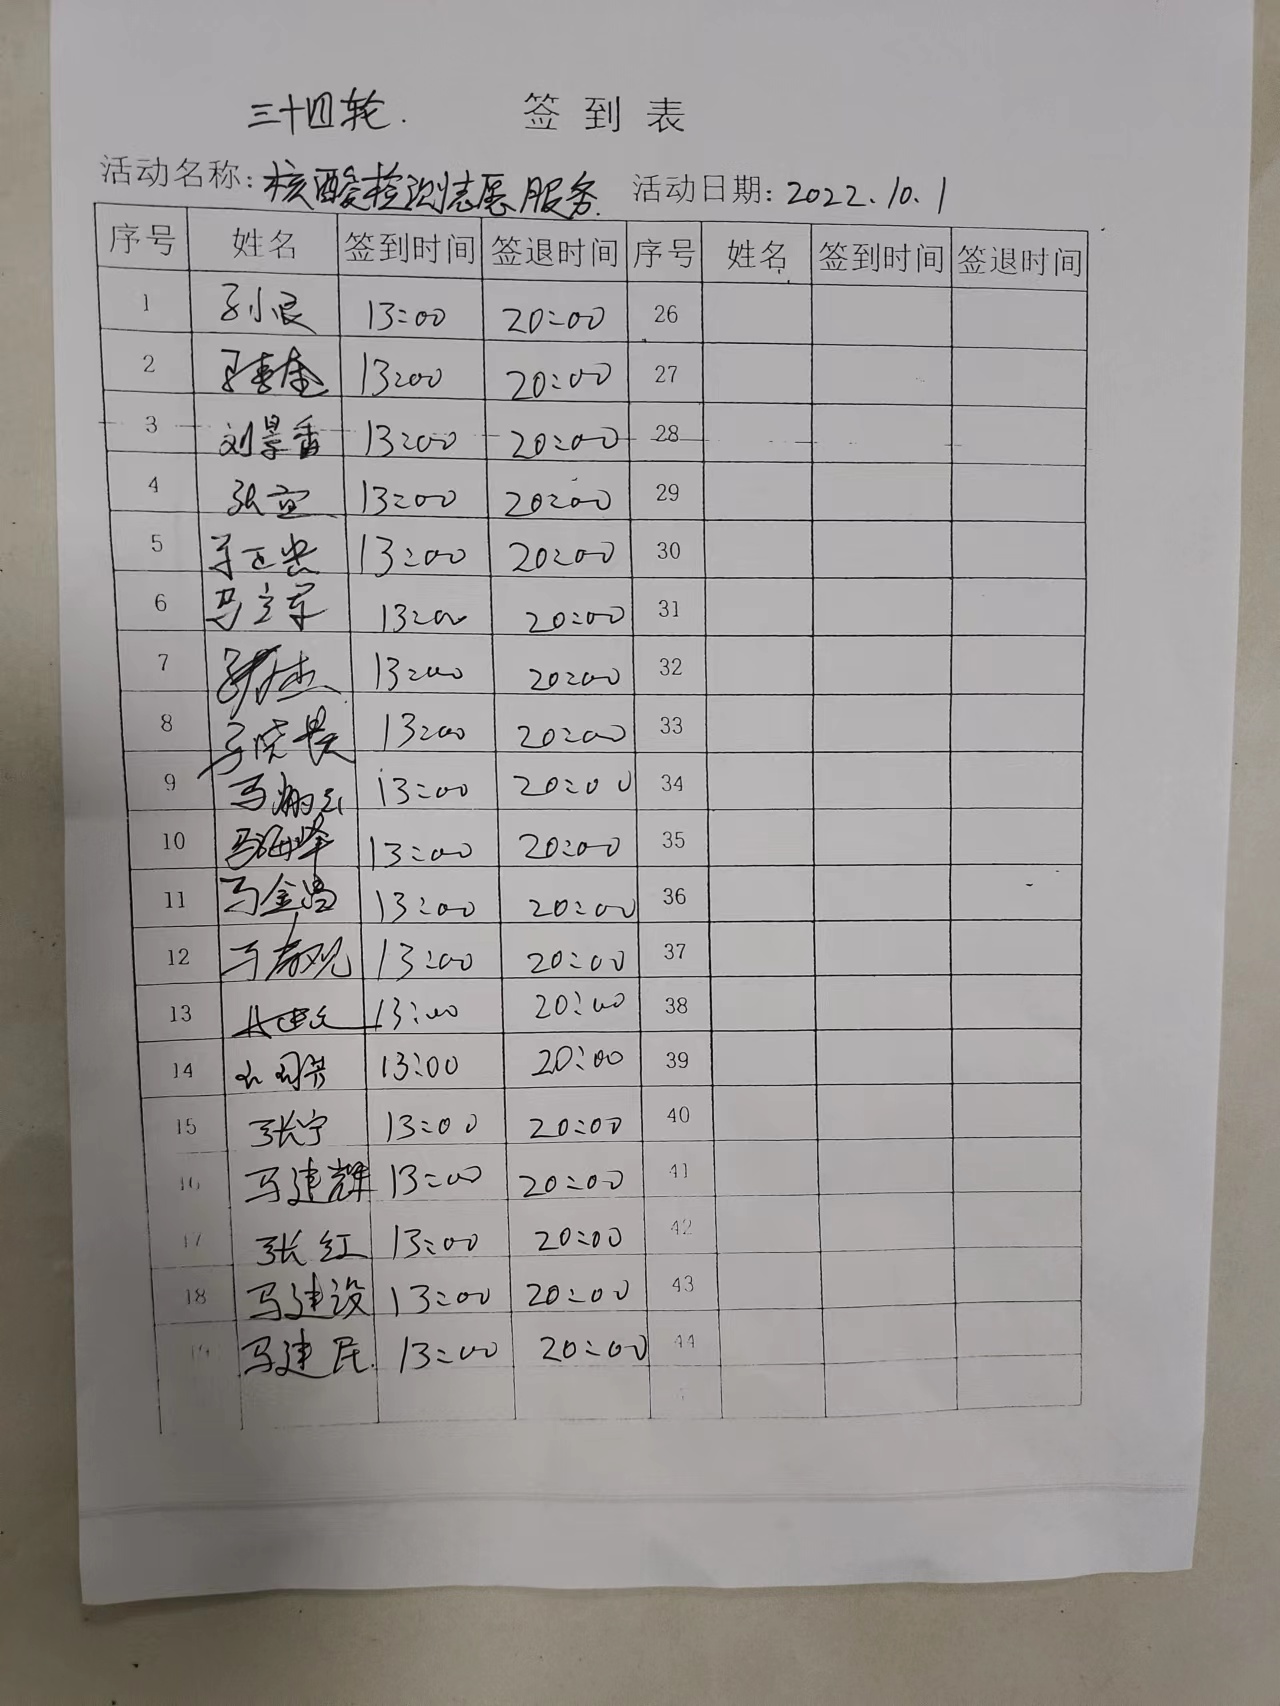 三十四轮. 签到表
活动名称: 核酸检测志愿服务 活动日期: 2022.10.1
序号 姓名 签到时间 签退时间 序号 姓名 签到时间 签退时间
1 13:00 20:00 26
2 13:00 20:00 27
3 刘景香 13:00 20:00 28
4 13:00 20:00 29
5 13:00 20:00 30
6 马立军 13:00 20:00 31
7 13:00 20:00 32
8 13:00 20:00 33
9 13:00 20:00 34
10 马海峰 13:00 20:00 35
11 马金昌 13:00 20:00 36
12 13:00 20:00 37
13 13:00 20:00 38
14 13:00 20:00 39
15 张宁 13:00 20:00 40
16 马建辉 13:00 20:00 41
17 张红 13:00 20:00 42
18 马建设 13:00 20:00 43
19 马建民 13:00 20:00 44